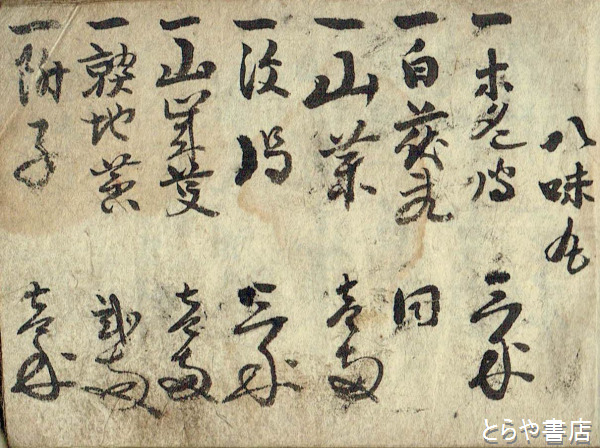 八味丸
一牡丹皮 三匁
一白茯苓 同
一山薬 壱両
一沢瀉 三匁
一山茱萸 壱両
一熟地黄 弐両
一附子 壱匁
とらや書店